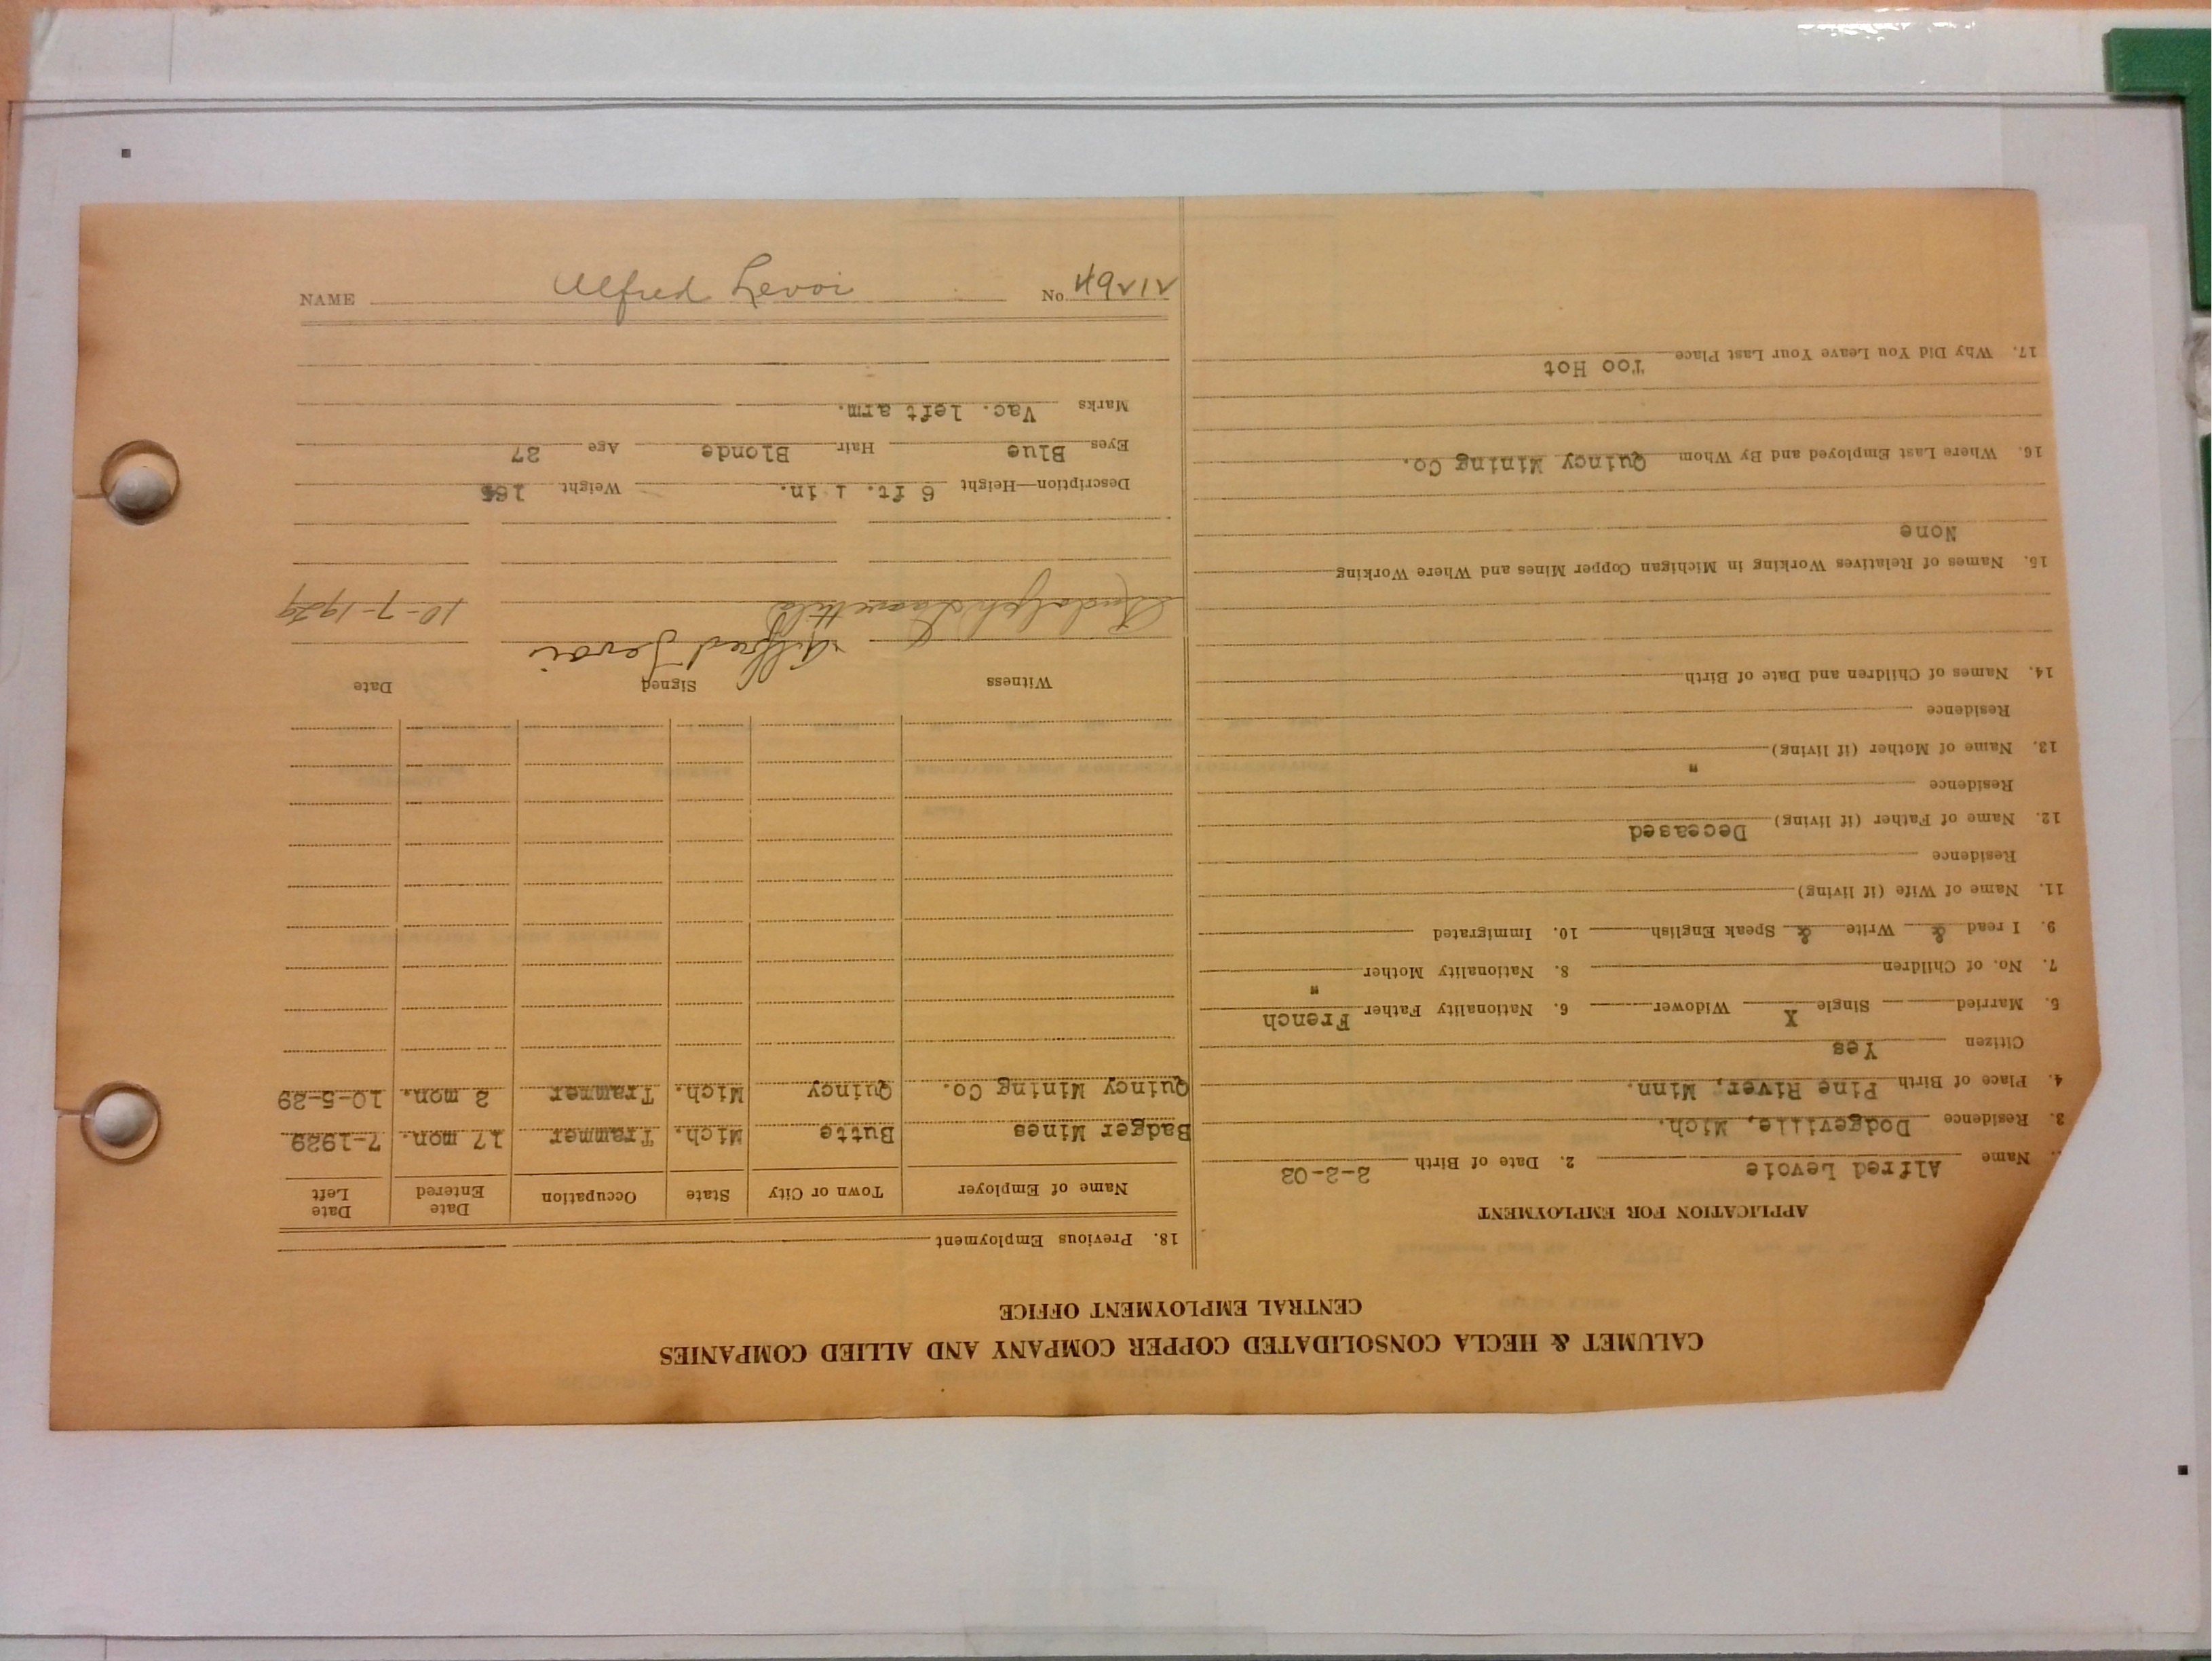 CALUMET & HECLA CONSOLIDATED COPPER COMPANY AND ALLIED COMPANIES
CENTRAL EMPLOYMENT OFFICE
APPLICATION FOR EMPLOYMENT
Name Alfred Levoie 2. Date of Birth 2-2-02
3. Residence Dodgeville, Mich.
4. Place of Birth Pine River, Minn.
Citizen Yes
5. Married Single X Widower 6. Nationality Father French
7. No. of Children 8. Nationality Mother "
9. I read & Write & Speak English 10. Immigrated
11. Name of Wife (if living)
Residence
12. Name of Father (if living) Deceased
Residence
13. Name of Mother (if living) "
Residence
14. Names of Children and Date of Birth
15. Names of Relatives Working in Michigan Copper Mines and Where Working
None
16. Where Last Employed and By Whom Quincy Mining Co.
17. Why Did You Leave Your Last Place Too Hot
18. Previous Employment
Name of Employer Town or City State Occupation Date Entered Date Left
Badger Mines Butte Mich. Trammer 17 mon. 7-1929
Quincy Mining Co. Quincy Mich. Trammer 2 mon. 10-5-29
Witness Signed Date
Alfred Levoi
Rudolph 10-7-1929
Description—Height 6 ft. 1 in. Weight
Eyes Blue Hair Blonde Age 27
Marks Vac. left arm.
NAME Alfred Levoi No. 49212